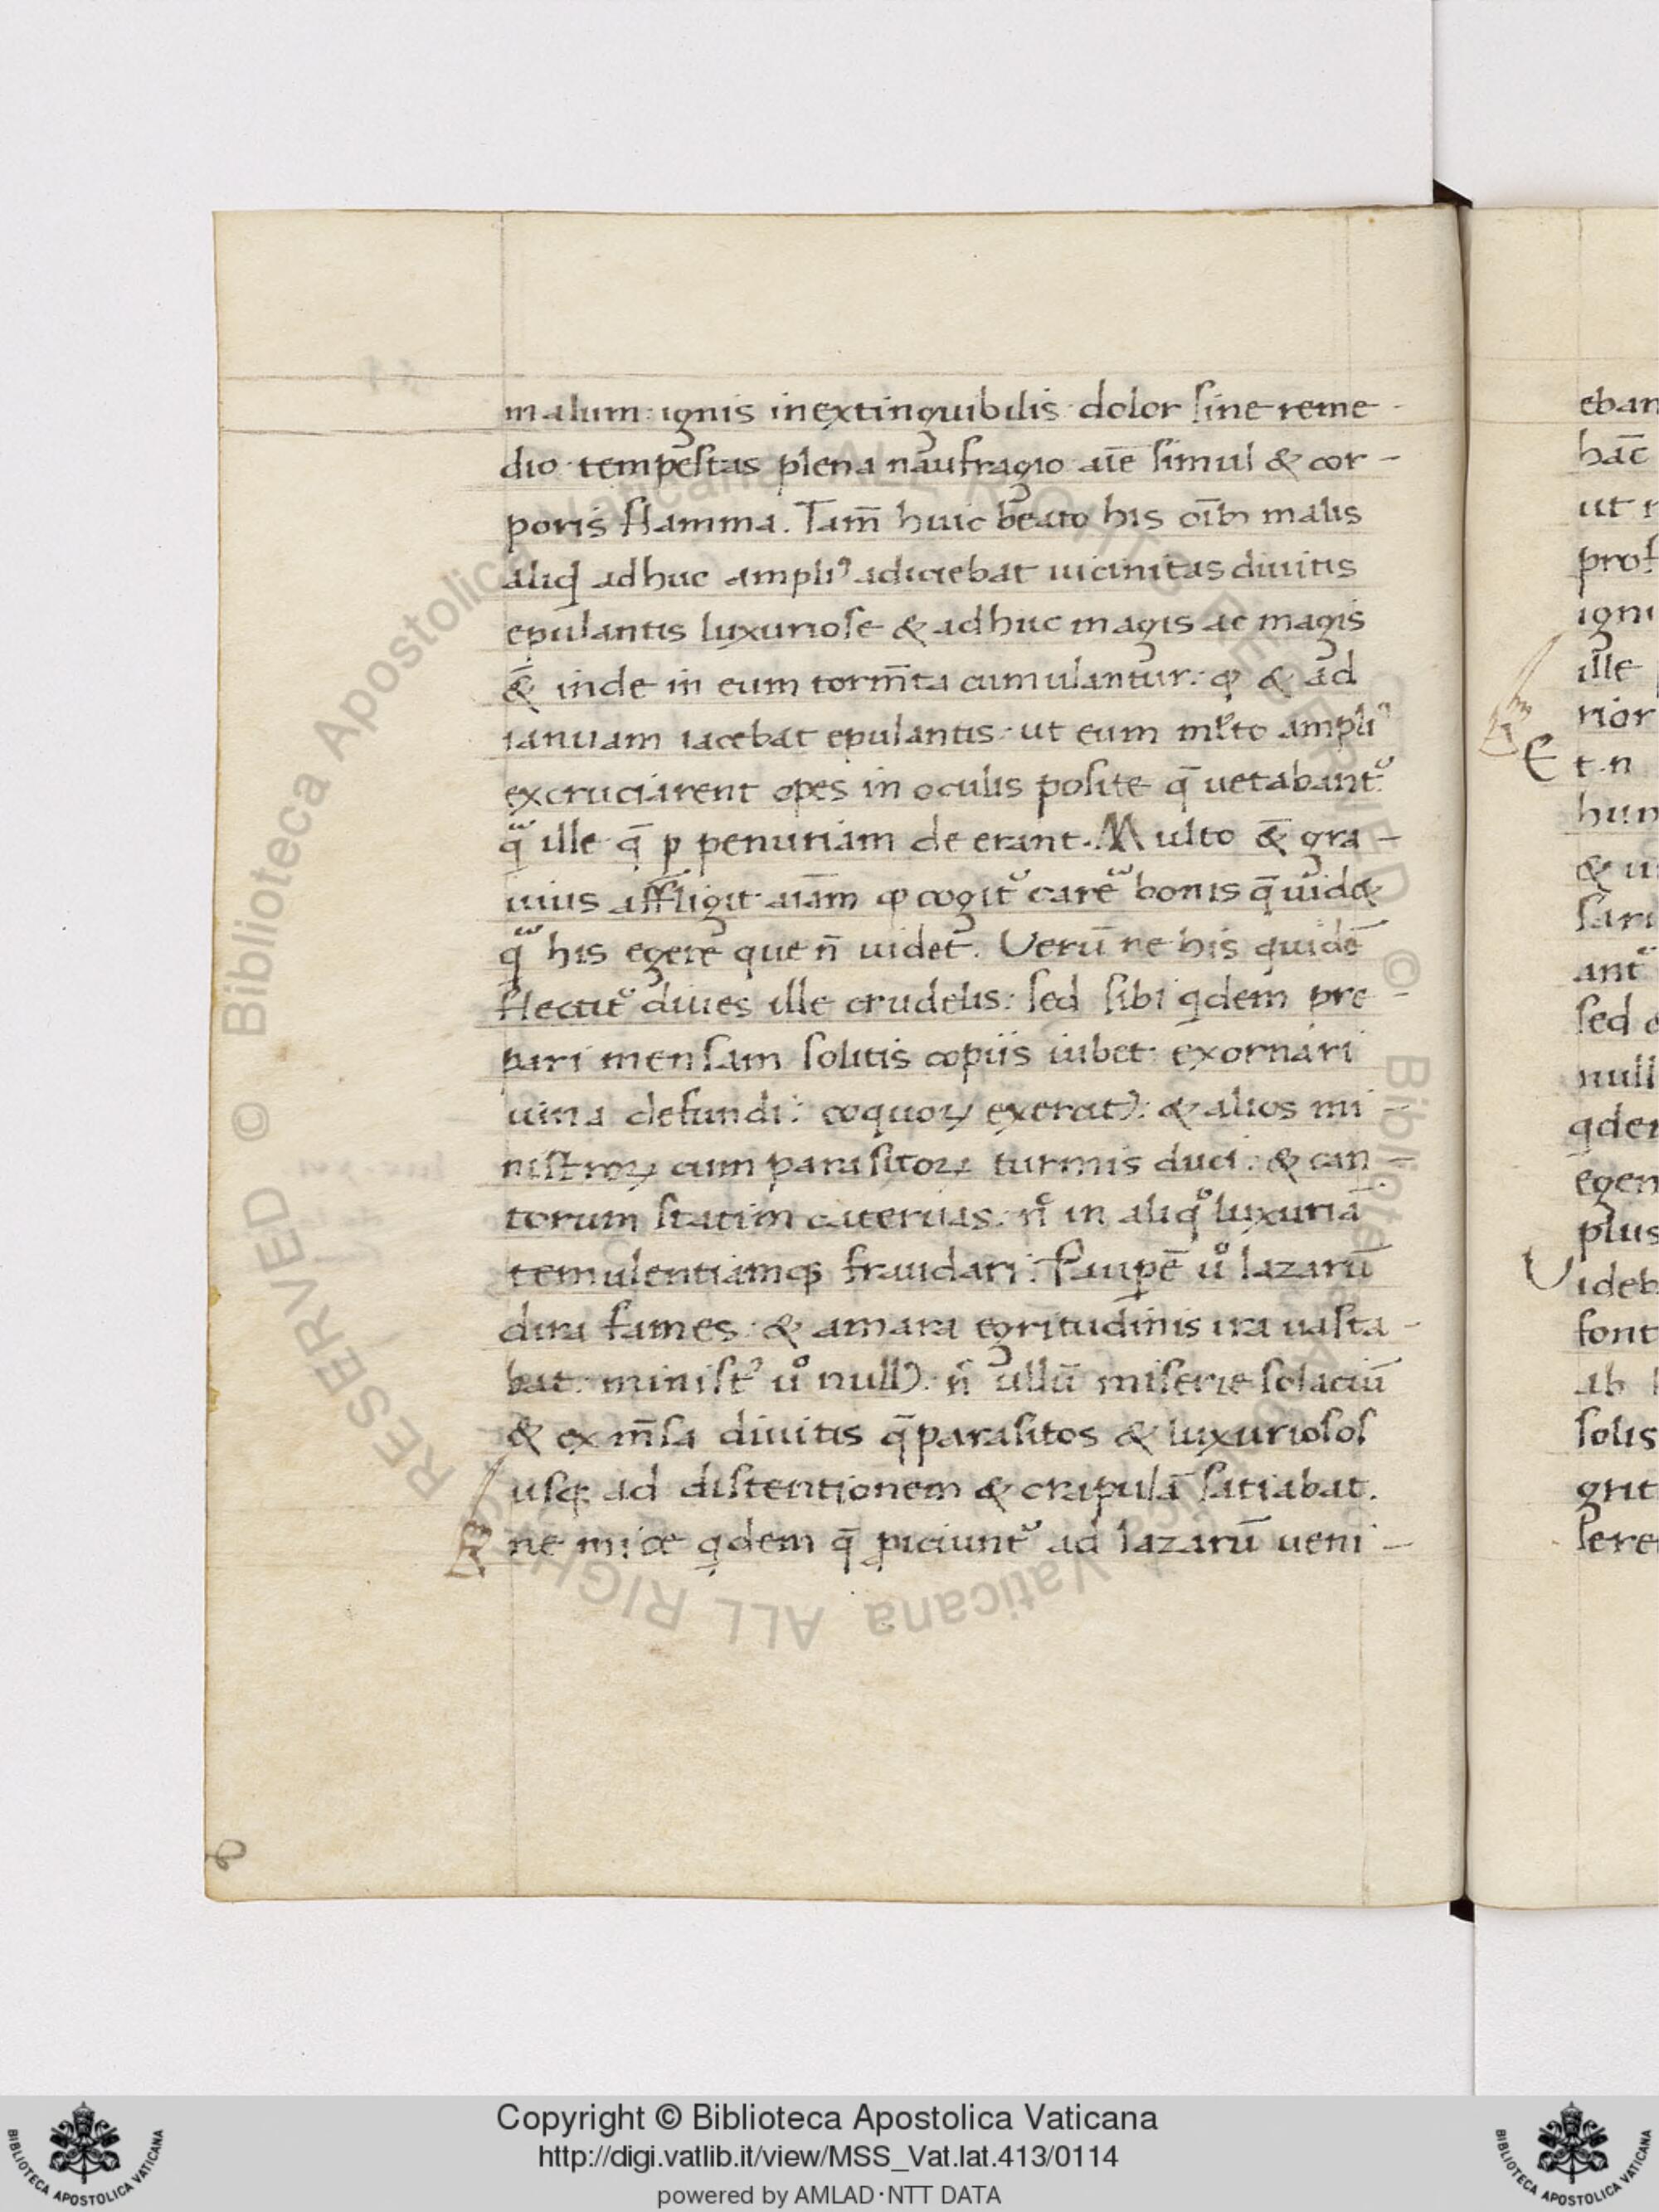 malum: ignis inextinguibilis dolor sine reme-
dio tempestas plena naufragio aīe simul & cor-
poris flamma. Tam̄ huic beato his oīb; malis
aliqđ adhuc ampliꝰ adiciebat uicinitas diuitis
epulantis luxuriose & adhuc magis ac magis
&̄ inde in eum torm̄ta cumulantur: ꝙ & ad
ianuam iacebat epulantis: ut eum mĺto ampliꝰ
excruciarent opes in oculis posite q̄ uetabantͬ
qᷓ ille q̄ ꝑ penuriam de erant. Multo &̄ gra-
uius affligit aīam ꝙ cogitͬ careᷓ bonis q̄ uid&
qᷓ his egere que n̄ uidet. Verū ne his quidē
flectitͬ diues ille crudelis: sed sibi qdem pre-
pari mensam solitis copiis iubet exornari
uina defundi: coquoꝝ exercitͫ: & alios mi-
nistroꝝ cum parasitoꝝ turmis duci: & can-
torum statim cateruas: n̊ in aliq̊ luxuriā
temulentiamq; fraudari: Paupē ů lazarū
dira fames & amara egritudinis ira uasta-
bat: ministꝰ ů nullͫ: n̊ ullū miserie solaciū
& ex m̄sa diuitis q̄ parasitos & luxuriosos
usq; ad distentionem & crapulā satiabat.
ne mice qdem q̄ ꝓiciuntͬ ad lazarū ueni-
eban
hāc
ut
prof
igni
ille
rior
Et n
hun
&
sari
antͬ
sed
null
qdem
egen
plus
Videb
font
ab
solis
grat
Copyright © Biblioteca Apostolica Vaticana
http://digi.vatlib.it/view/MSS_Vat.lat.413/0114
powered by AMLAD·NTT DATA
BIBLIOTECA APOSTOLICA VATICANA
BIBLIOTECA APOSTOLICA VATICANA
Biblioteca Apostolica Vaticana ALL RIGHTS RESERVED ©
Biblioteca Apostolica Vaticana ALL RIGHTS RESERVED ©